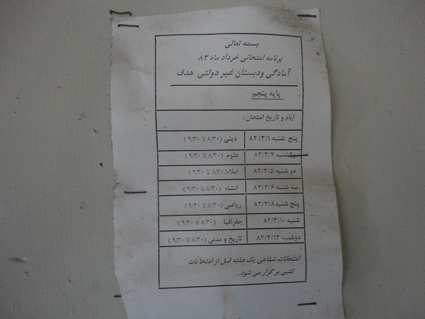 بسمه تعالی
برنامه امتحانی خرداد ماه ۸۲
آمادگی ودبستان غیر دولتی هدف
پایه پنجم
ایام و تاریخ امتحان :
پنج شنبه ۸۲/۳/۱ دینی (۸/۳۰ تا ۹/۳۰)
یکشنبه ۸۲/۳/۴ علوم (۸/۳۰ تا ۹/۳۰)
دو شنبه ۸۲/۳/۵ املاء (۸/۳۰ تا ۹/۳۰)
سه شنبه ۸۲/۳/۶ انشاء (۸/۳۰ تا ۹/۳۰)
پنج شنبه ۸۲/۳/۸ ریاضی (۸/۳۰ تا ۹/۳۰)
شنبه ۸۲/۳/۱۰ جغرافیا (۸/۳۰ تا ۹/۳۰)
دوشنبه ۸۲/۳/۱۲ تاریخ و مدنی (۸/۳۰ تا ۹/۳۰)
امتحانات شفاهی یک هفته قبل از امتحانات
کتبی برگزار می شود .